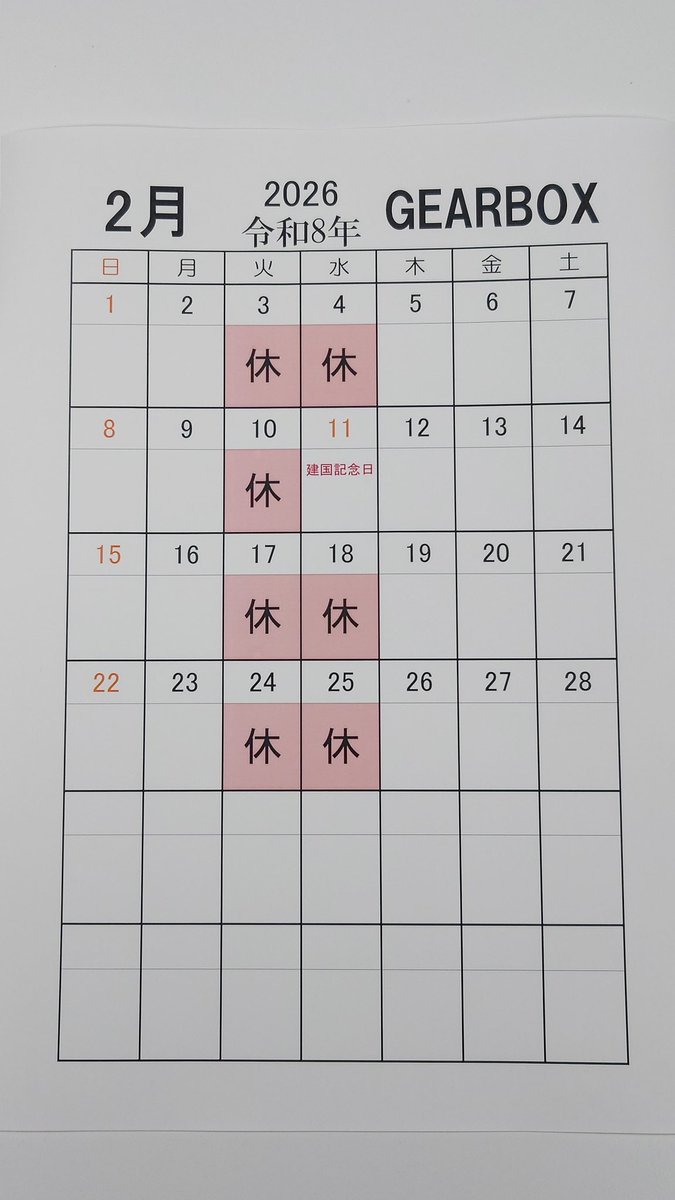 2月 2026 GEARBOX
令和8年
日 月 火 水 木 金 土
1 2 3 4 5 6 7
休 休
8 9 10 11 12 13 14
休 建国記念日
15 16 17 18 19 20 21
休 休
22 23 24 25 26 27 28
休 休